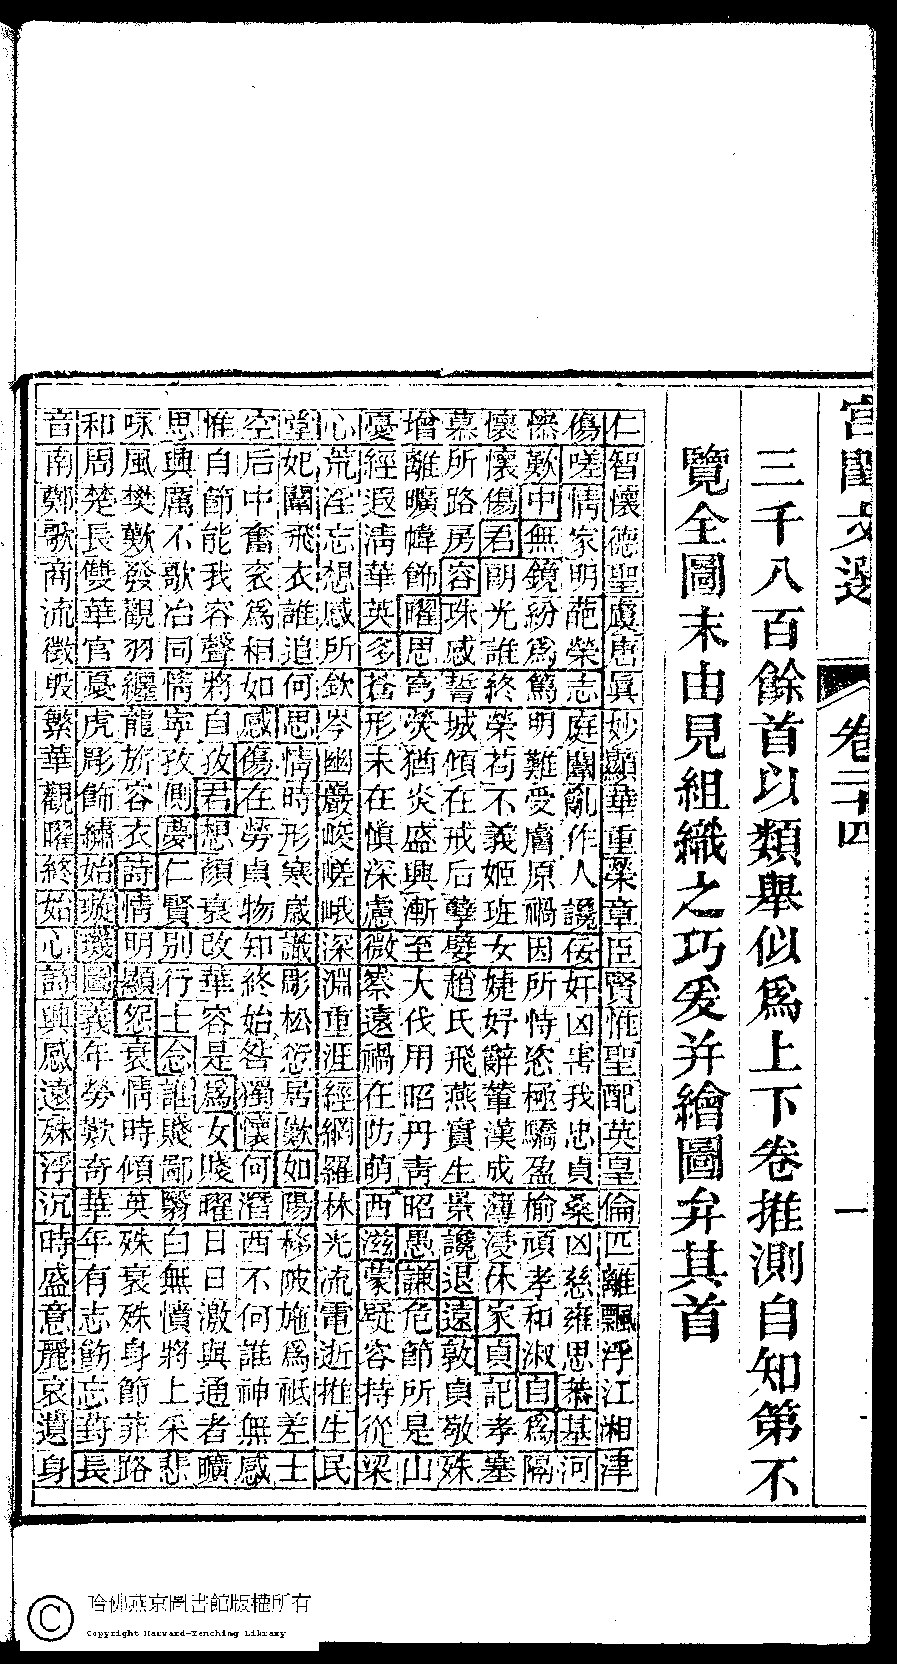 宮閨文選 卷二十四 一
三千八百餘首以類舉似爲上下卷推測自知第不
覽全圖末由見組織之巧爰并繪圖弁其首
仁智懷德聖虞唐眞妙顯華重榮章臣賢惟聖配英皇倫匹離飄浮江湘津
傷嗟情家明葩榮志庭闈亂作人讒佞奸凶害我忠貞桑凶慈雍思恭基河
慘歎中無鏡紛爲篤明難受膚原禍因所恃恣極驕盈榆頑孝和淑自爲隔
懷懷傷君朗光誰終榮苟不義姬班女婕妤辭輦漢成薄浸休家貞記孝塞
慕所路房容珠感誓城傾在戒后孽嬖趙氏飛燕實生景讒退遠敦貞敬殊
增離曠幃飾曜思穹熒猶炎盛興漸至大伐用昭丹靑昭愚謙危節所是山
憂經遐淸華英多蒼形未在愼深慮微察遠禍在防萌西滋蒙疑容持從梁
心荒淫忘想感所欽岑幽巖峻嵯峨深淵重涯經網羅林光流電逝推生民
堂妃闈飛衣誰追何思情時形寒歲識彫松愆居歎如陽移陂施爲祇差士
空后中奮袞爲相如感傷在勞貞物知終始咎獨懷何潛西不何誰神無感
惟自節能我容聲將自孜君想顏衰改華容是爲女賤曜日日激與通者曠
思興厲不歌冶同情寧孜側夢仁賢別行士念誰賤鄙翳白無憤將上采悲
咏風樊歎發觀羽纏龍旂容衣詩情明顯怨衰情時傾英殊衰殊身節菲路
和周楚長雙華官憂虎彫飾繡始璇璣圖義年勞歎奇華年有志飭忘葑長
音南鄭歌商流徵殷繁華觀曜終始心詩興感遠殊浮沉時盛意麗哀遺身
哈佛燕京圖書館版權所有
Copyright Harvard-Yenching Library